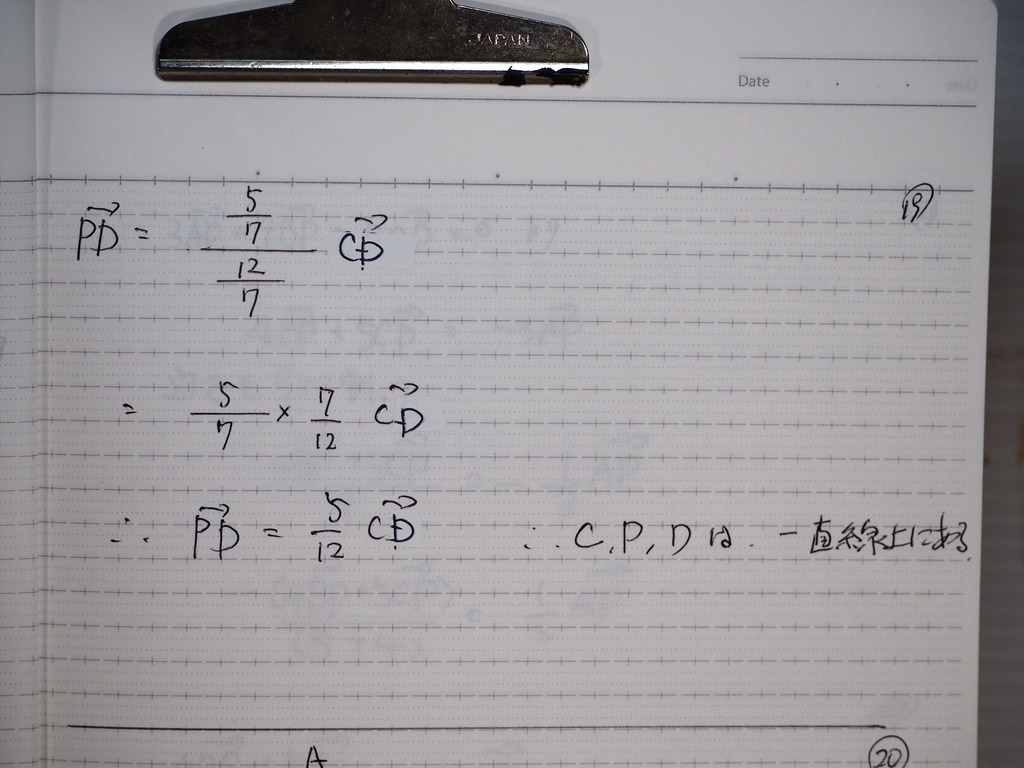 JAPAN
Date
⑲
PD→ = (5/7)/(12/7) CD→
= 5/7 × 7/12 CD→
∴ PD→ = 5/12 CD→ ∴ C, P, D は 一直線上にある.
A ⑳